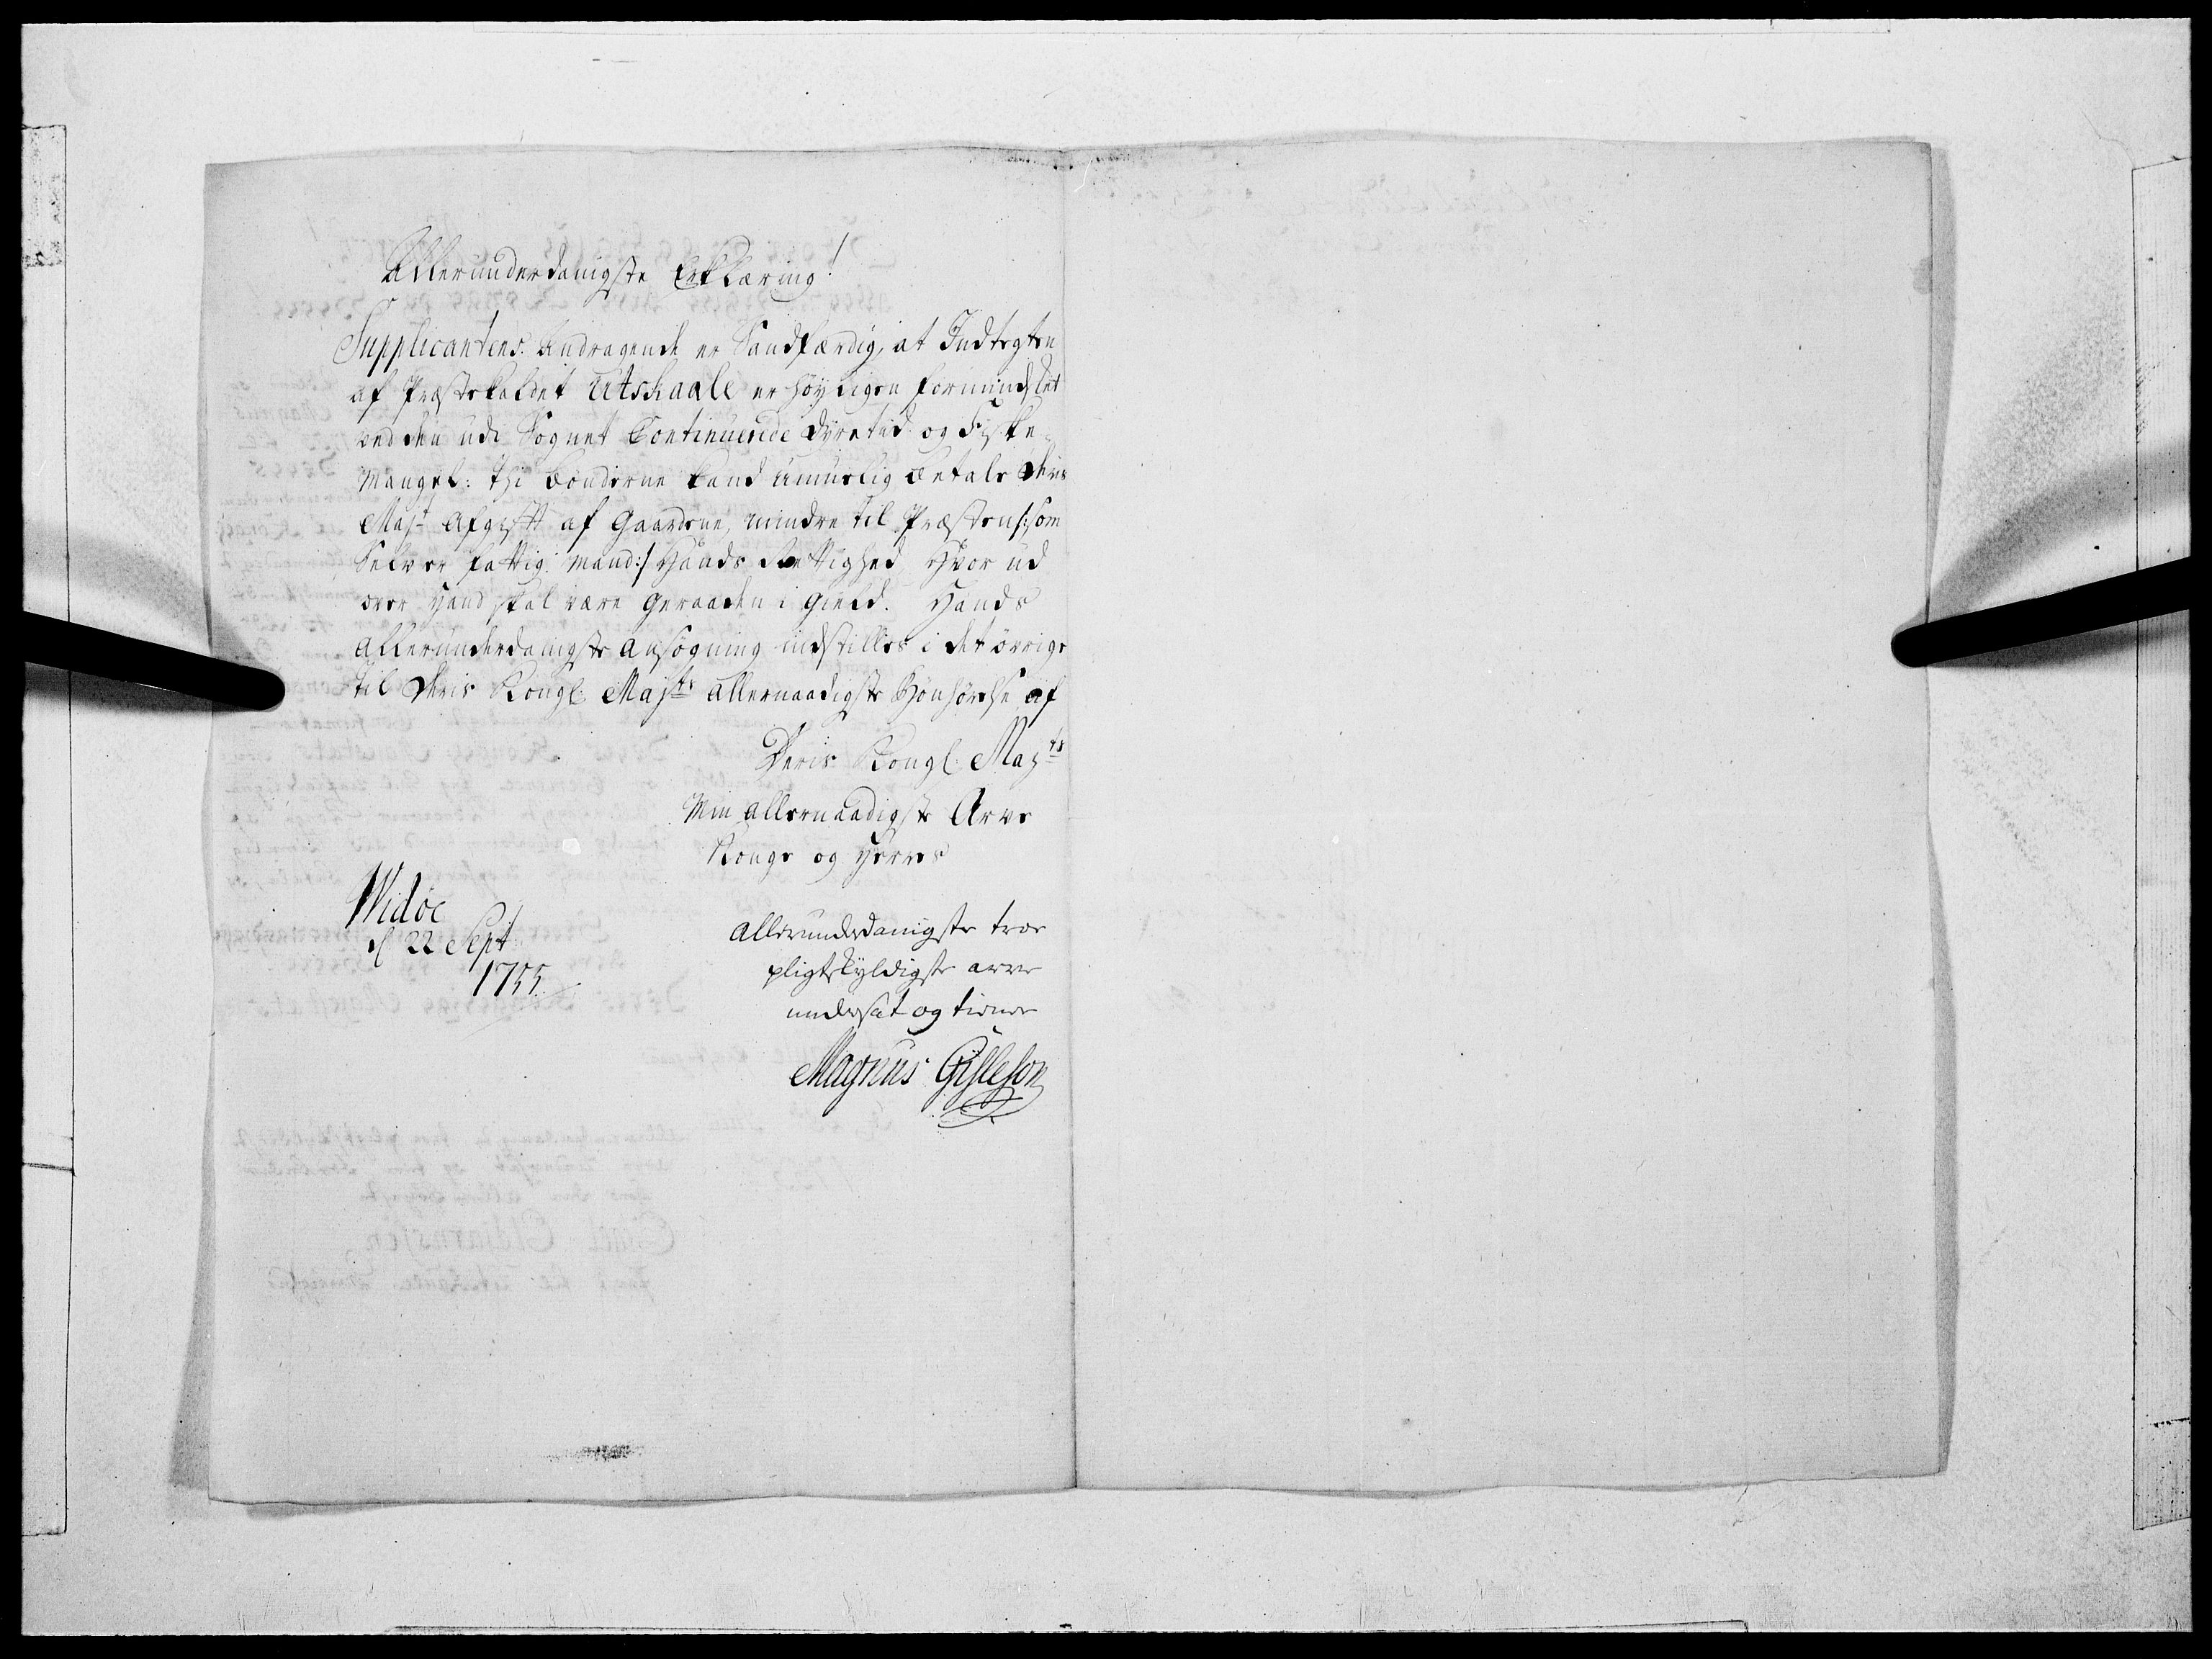 Allerunderdanigste Erklæring!
Supplicantens Andragende er Sandfærdig, at Indtegten
af Præstekaldet Utskaale er höyligen formindsket
ved den udi Sognet Continuerede dyretid og Fiske-
Mangel: thi Bönderne kand umuelig betale Deris
Majt Afgift af Gaardene, mindre til Præsten /:som
Selv er fattig Mand:/ Hands Rettighed Hvor ud
over Hand skal være geraaden i gield. Hands
allerunderdanigste ansögning indstilles i det övrige
til Deris Kongl: Majts allernaadigste Bönhörelse af
Deris Kongl: Mayts
Min allernaadigste Arve
Konge og Herres
Widöe
d 22 Sept
1755.
allerunderdanigste troe
pligtskyldigste arve
undersat og tiener
Magnus Gisleson